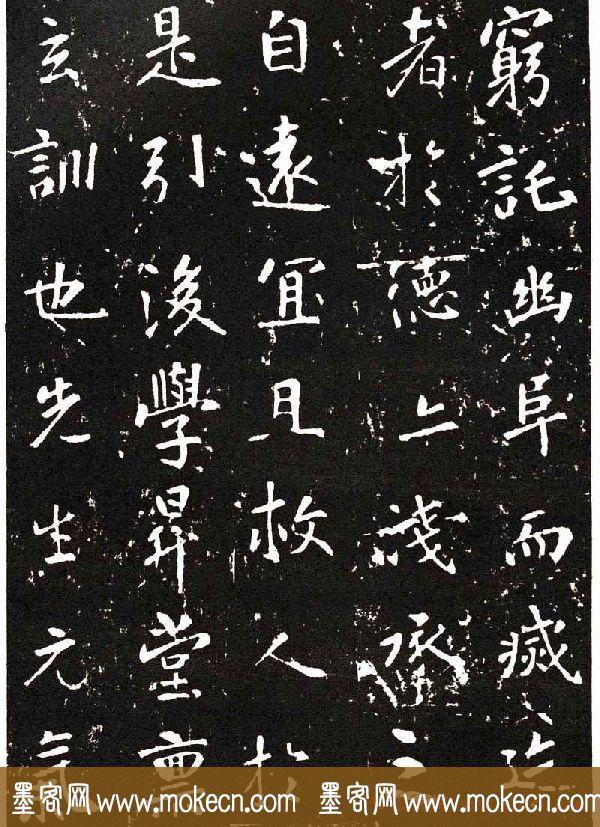 窮託幽阜而滅迹
者於德上淺承
自遠宜且救人於
是引後學昇堂稟
玄訓也先生元氣
墨客网 www.mokecn.com 墨客网 www.mokecn.com